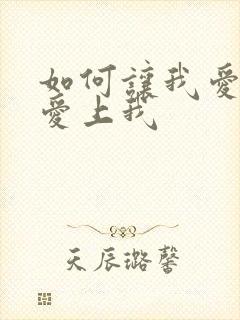 如何讓我愛
愛上我
天辰璐馨